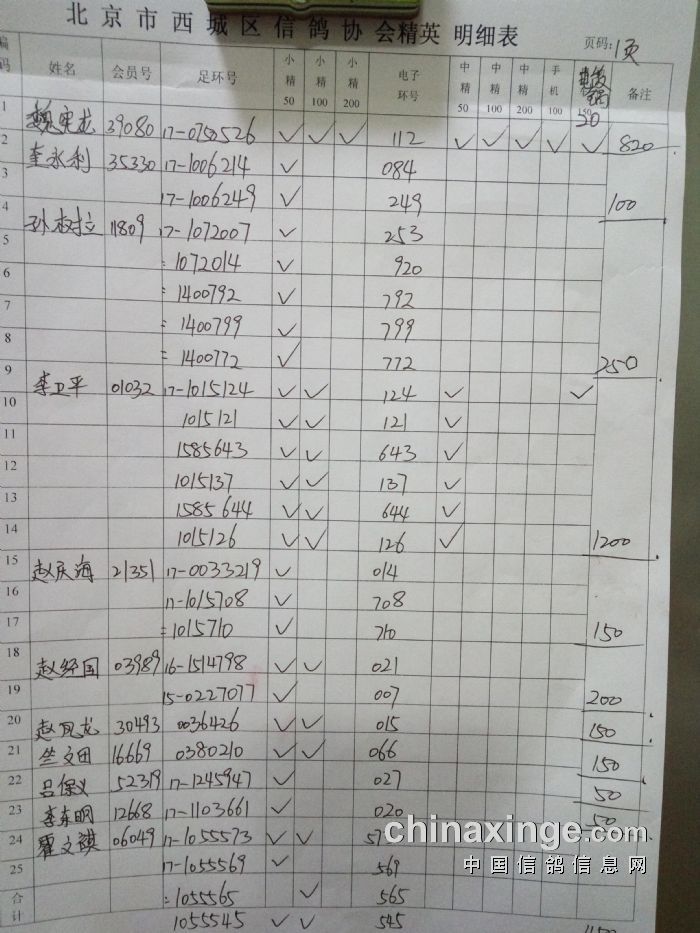 北京市西城区信鸽协会精英 明细表
页码: 1页
编码 姓名 会员号 足环号 小精50 小精100 小精200 电子环号 中精50 中精100 中精200 手机100 备注
1 39080 17-0750526 ✓ ✓ ✓ 112 ✓ ✓ ✓ ✓ ✓ 820
2 李永利 35330 17-1006214 ✓ 084
3 17-1006249 ✓ 249 100
4 11809 17-1072007 ✓ 253
5 :1072014 ✓ 920
6 :1400792 ✓ 792
7 :1400799 ✓ 799
8 :1400772 ✓ 772 250
9 李卫平 01032 17-1015124 ✓ ✓ 124 ✓ ✓
10 1015121 ✓ ✓ 121 ✓
11 1585643 ✓ ✓ 643 ✓
12 1015137 ✓ ✓ 137 ✓
13 1585644 ✓ ✓ 644 ✓
14 1015126 ✓ ✓ 126 ✓ 1200
15 赵庆海 21351 17-0033219 ✓ 014
16 17-1015708 ✓ 708
17 :1015710 ✓ 710 150
18 赵经国 03989 16-1514798 ✓ ✓ 021
19 15-0227077 ✓ 007 200
20 赵凤龙 30493 0036426 ✓ ✓ 015 150
21 竺文田 16669 0380210 ✓ ✓ 066 150
22 吕保义 52319 17-1245947 ✓ 027 50
23 李东明 12668 17-1103661 ✓ 020 50
24 霍文祺 06049 17-1055573 ✓ ✓
25 17-1055569 ✓ 569
合计 :1055565 ✓ 565
1055545 ✓ ✓ 545
chinaxinge.com
中国信鸽信息网